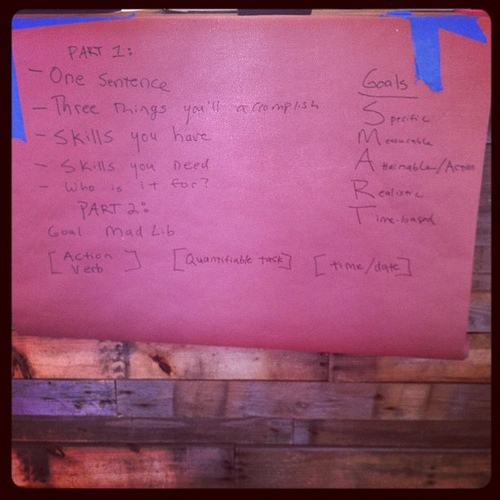 PART 1:
- One Sentence
- Three things you'll accomplish
- Skills you have
- Skills you need
- Who is it for?
PART 2:
Goal Mad Lib
[Action Verb] [Quantifiable task] [time/date]
Goals
Specific
Measurable
Attainable/Action
Realistic
Time-based